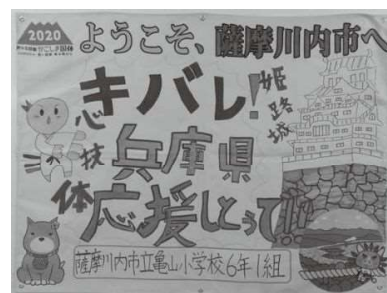 2020
かごしま国体
ようこそ、薩摩川内市へ
キバレ!
姫路城
心技体
兵庫県
応援しとぅで!!!
薩摩川内市立亀山小学校6年1組